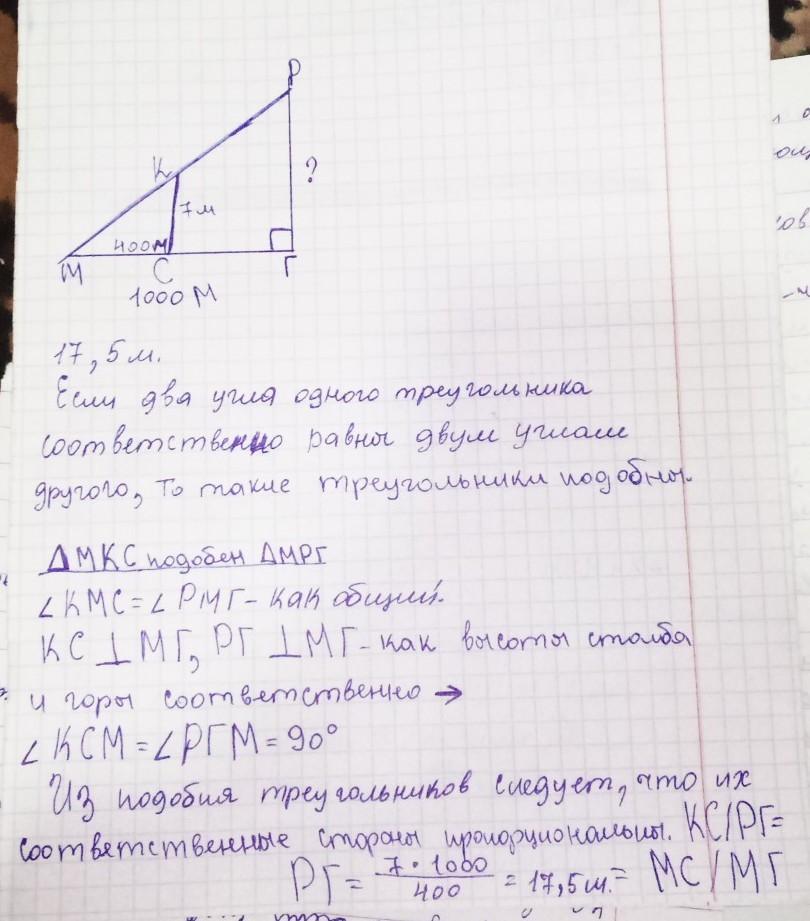 Р
К
?
7м
400м
М
С
Г
1000 М
17,5м.
Если два угла одного треугольника
соответственно равны двум углам
другого, то такие треугольники подобны.
ΔМКС подобен ΔМРГ
∠КМС=∠РМГ-как общий.
КС⊥МГ, РГ⊥МГ-как высоты столба
и горы соответственно →
∠КСМ=∠РГМ=90°
Из подобия треугольников следует, что их
соответственные стороны пропорциональны. КС/РГ=
РГ= 7·1000/400 =17,5м.= МС/МГ